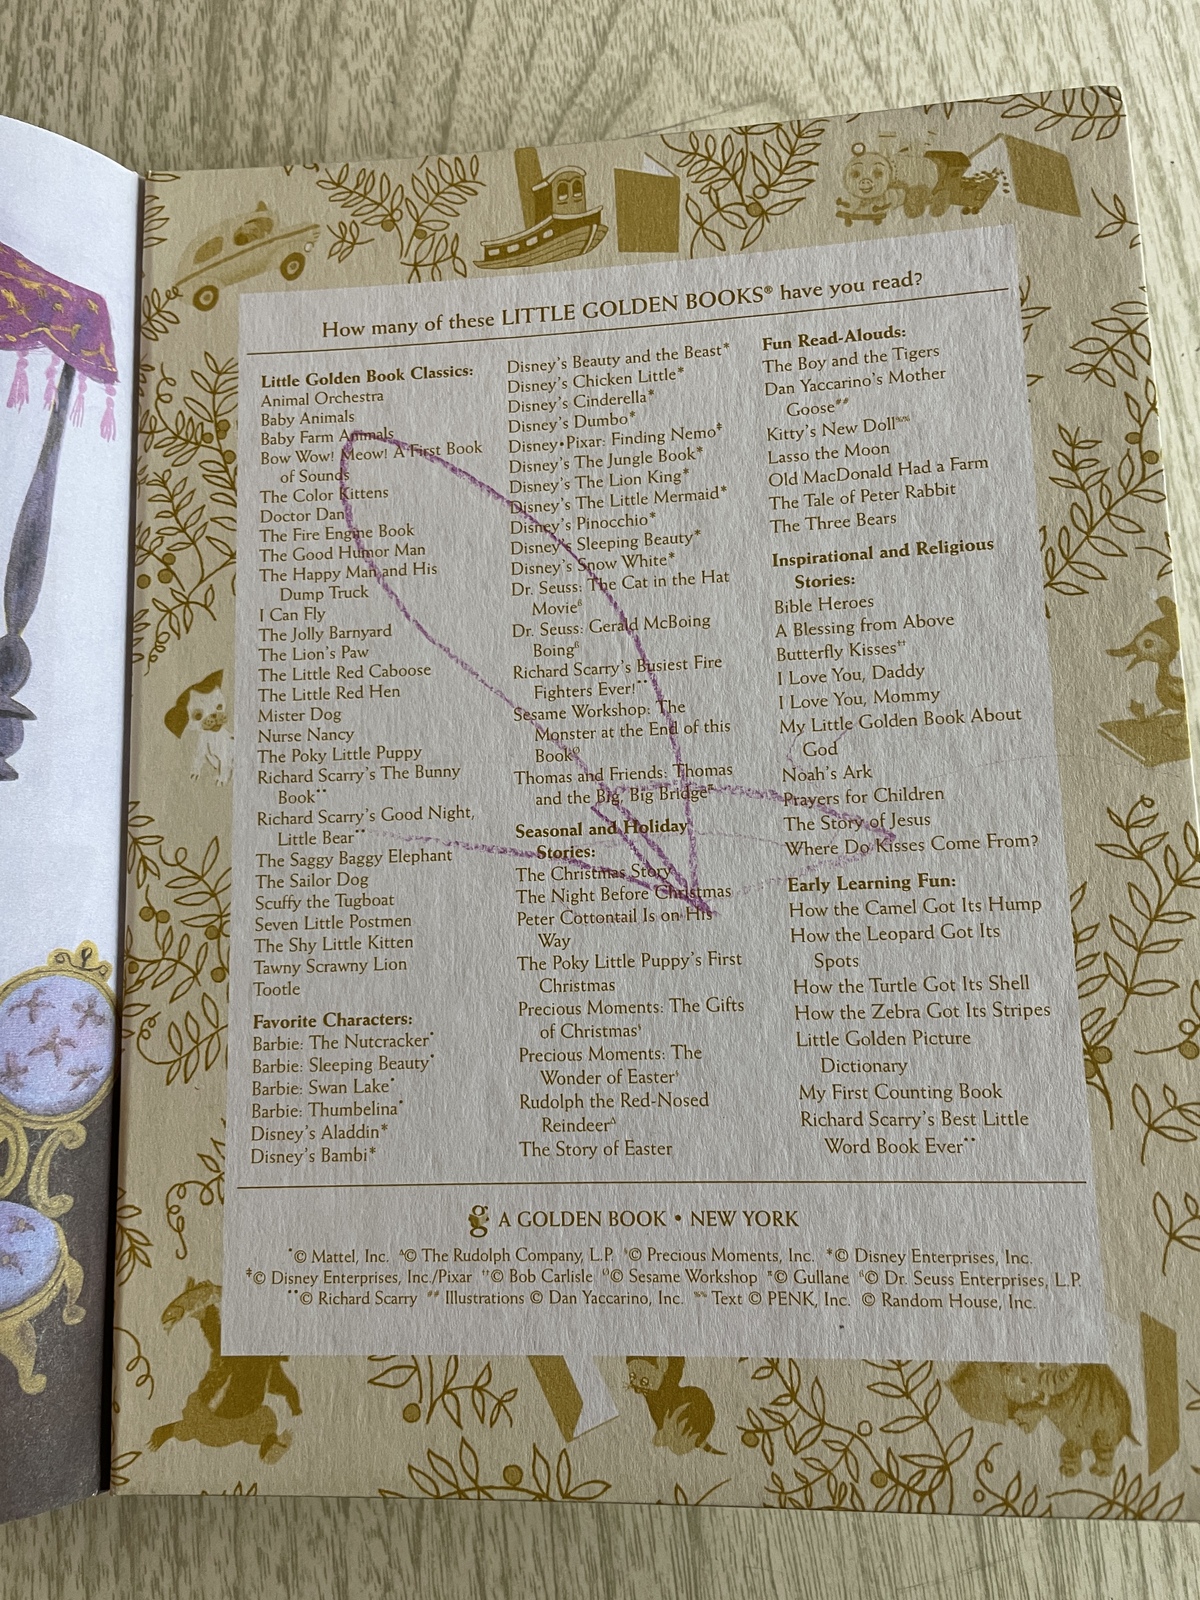 How many of these LITTLE GOLDEN BOOKS® have you read?
Little Golden Book Classics:
Animal Orchestra
Baby Animals
Baby Farm Animals
Bow Wow! Meow! A First Book
of Sounds
The Color Kittens
Doctor Dan
The Fire Engine Book
The Good Humor Man
The Happy Man and His
Dump Truck
I Can Fly
The Jolly Barnyard
The Lion's Paw
The Little Red Caboose
The Little Red Hen
Mister Dog
Nurse Nancy
The Poky Little Puppy
Richard Scarry's The Bunny
Book**
Richard Scarry's Good Night,
Little Bear**
The Saggy Baggy Elephant
The Sailor Dog
Scuffy the Tugboat
Seven Little Postmen
The Shy Little Kitten
Tawny Scrawny Lion
Tootle
Favorite Characters:
Barbie: The Nutcracker*
Barbie: Sleeping Beauty*
Barbie: Swan Lake*
Barbie: Thumbelina*
Disney's Aladdin*
Disney's Bambi*
Disney's Beauty and the Beast*
Disney's Chicken Little*
Disney's Cinderella*
Disney's Dumbo*
Disney•Pixar: Finding Nemo‡
Disney's The Jungle Book*
Disney's The Lion King*
Disney's The Little Mermaid*
Disney's Pinocchio*
Disney's Sleeping Beauty*
Disney's Snow White*
Dr. Seuss: The Cat in the Hat
Movie
Dr. Seuss: Gerald McBoing
Boing
Richard Scarry's Busiest Fire
Fighters Ever!**
Sesame Workshop: The
Monster at the End of this
Book
Thomas and Friends: Thomas
and the Big, Big Bridge
Seasonal and Holiday
Stories:
The Christmas Story
The Night Before Christmas
Peter Cottontail Is on His
Way
The Poky Little Puppy's First
Christmas
Precious Moments: The Gifts
of Christmas
Precious Moments: The
Wonder of Easter
Rudolph the Red-Nosed
Reindeer
The Story of Easter
Fun Read-Alouds:
The Boy and the Tigers
Dan Yaccarino's Mother
Goose##
Kitty's New Doll%%
Lasso the Moon
Old MacDonald Had a Farm
The Tale of Peter Rabbit
The Three Bears
Inspirational and Religious
Stories:
Bible Heroes
A Blessing from Above
Butterfly Kisses††
I Love You, Daddy
I Love You, Mommy
My Little Golden Book About
God
Noah's Ark
Prayers for Children
The Story of Jesus
Where Do Kisses Come From?
Early Learning Fun:
How the Camel Got Its Hump
How the Leopard Got Its
Spots
How the Turtle Got Its Shell
How the Zebra Got Its Stripes
Little Golden Picture
Dictionary
My First Counting Book
Richard Scarry's Best Little
Word Book Ever**
A GOLDEN BOOK • NEW YORK
*© Mattel, Inc. © The Rudolph Company, L.P. © Precious Moments, Inc. *© Disney Enterprises, Inc.
‡© Disney Enterprises, Inc./Pixar ††© Bob Carlisle © Sesame Workshop © Gullane © Dr. Seuss Enterprises, L.P.
**© Richard Scarry ## Illustrations © Dan Yaccarino, Inc. %% Text © PENK, Inc. © Random House, Inc.